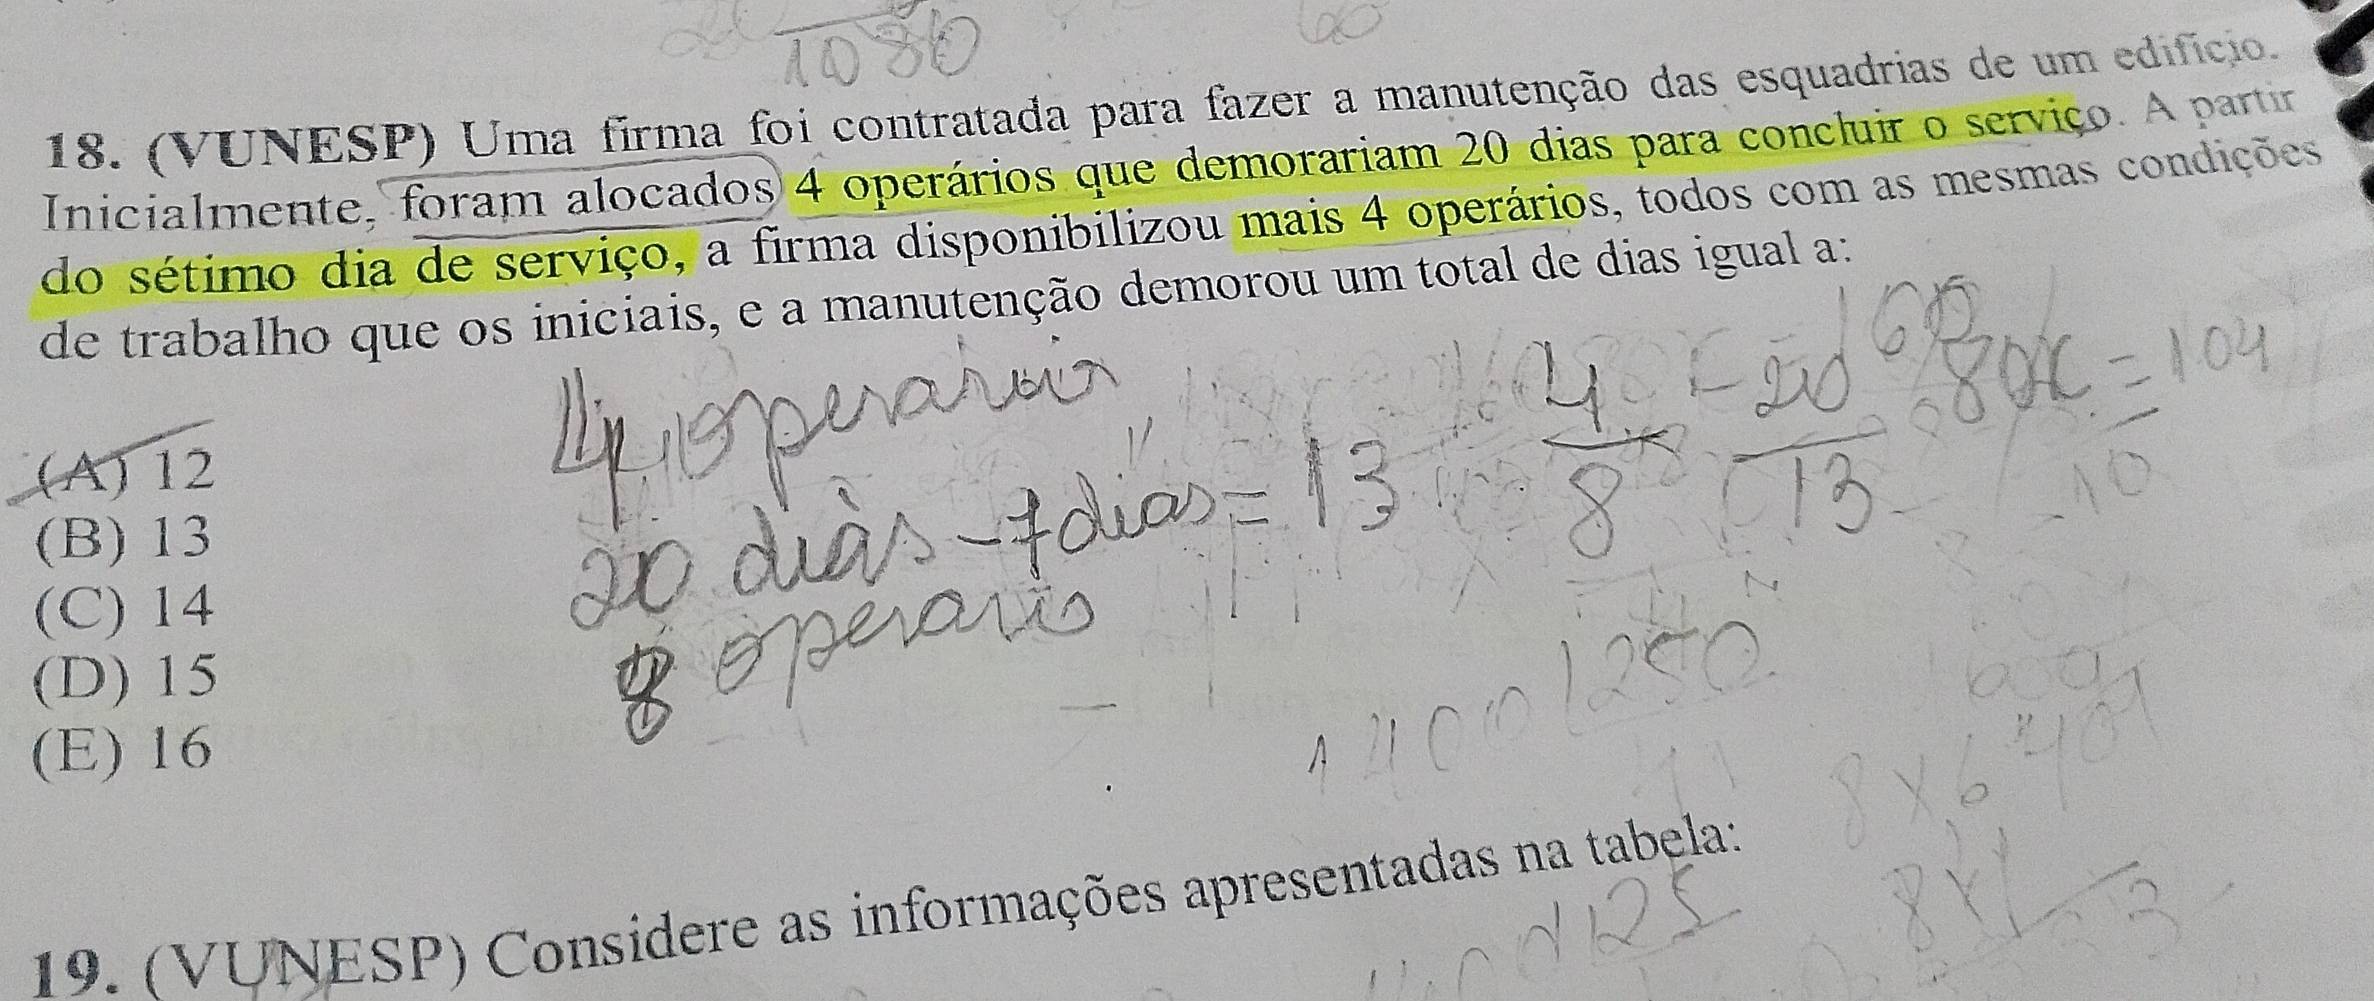 1080
60
18. (VUNESP) Uma firma foi contratada para fazer a manutenção das esquadrias de um edifício.
Inicialmente, foram alocados 4 operários que demorariam 20 dias para concluir o serviço. A partir
do sétimo dia de serviço, a firma disponibilizou mais 4 operários, todos com as mesmas condições
de trabalho que os iniciais, e a manutenção demorou um total de dias igual a:
(A) 12
(B) 13
(C) 14
(D) 15
(E) 16
4 operarios
20 dias - 7 dias = 13
8 operarios
4 20
8 13
80x = 104
10
1400 1250
8x6
125
19. (VUNESP) Considere as informações apresentadas na tabela: